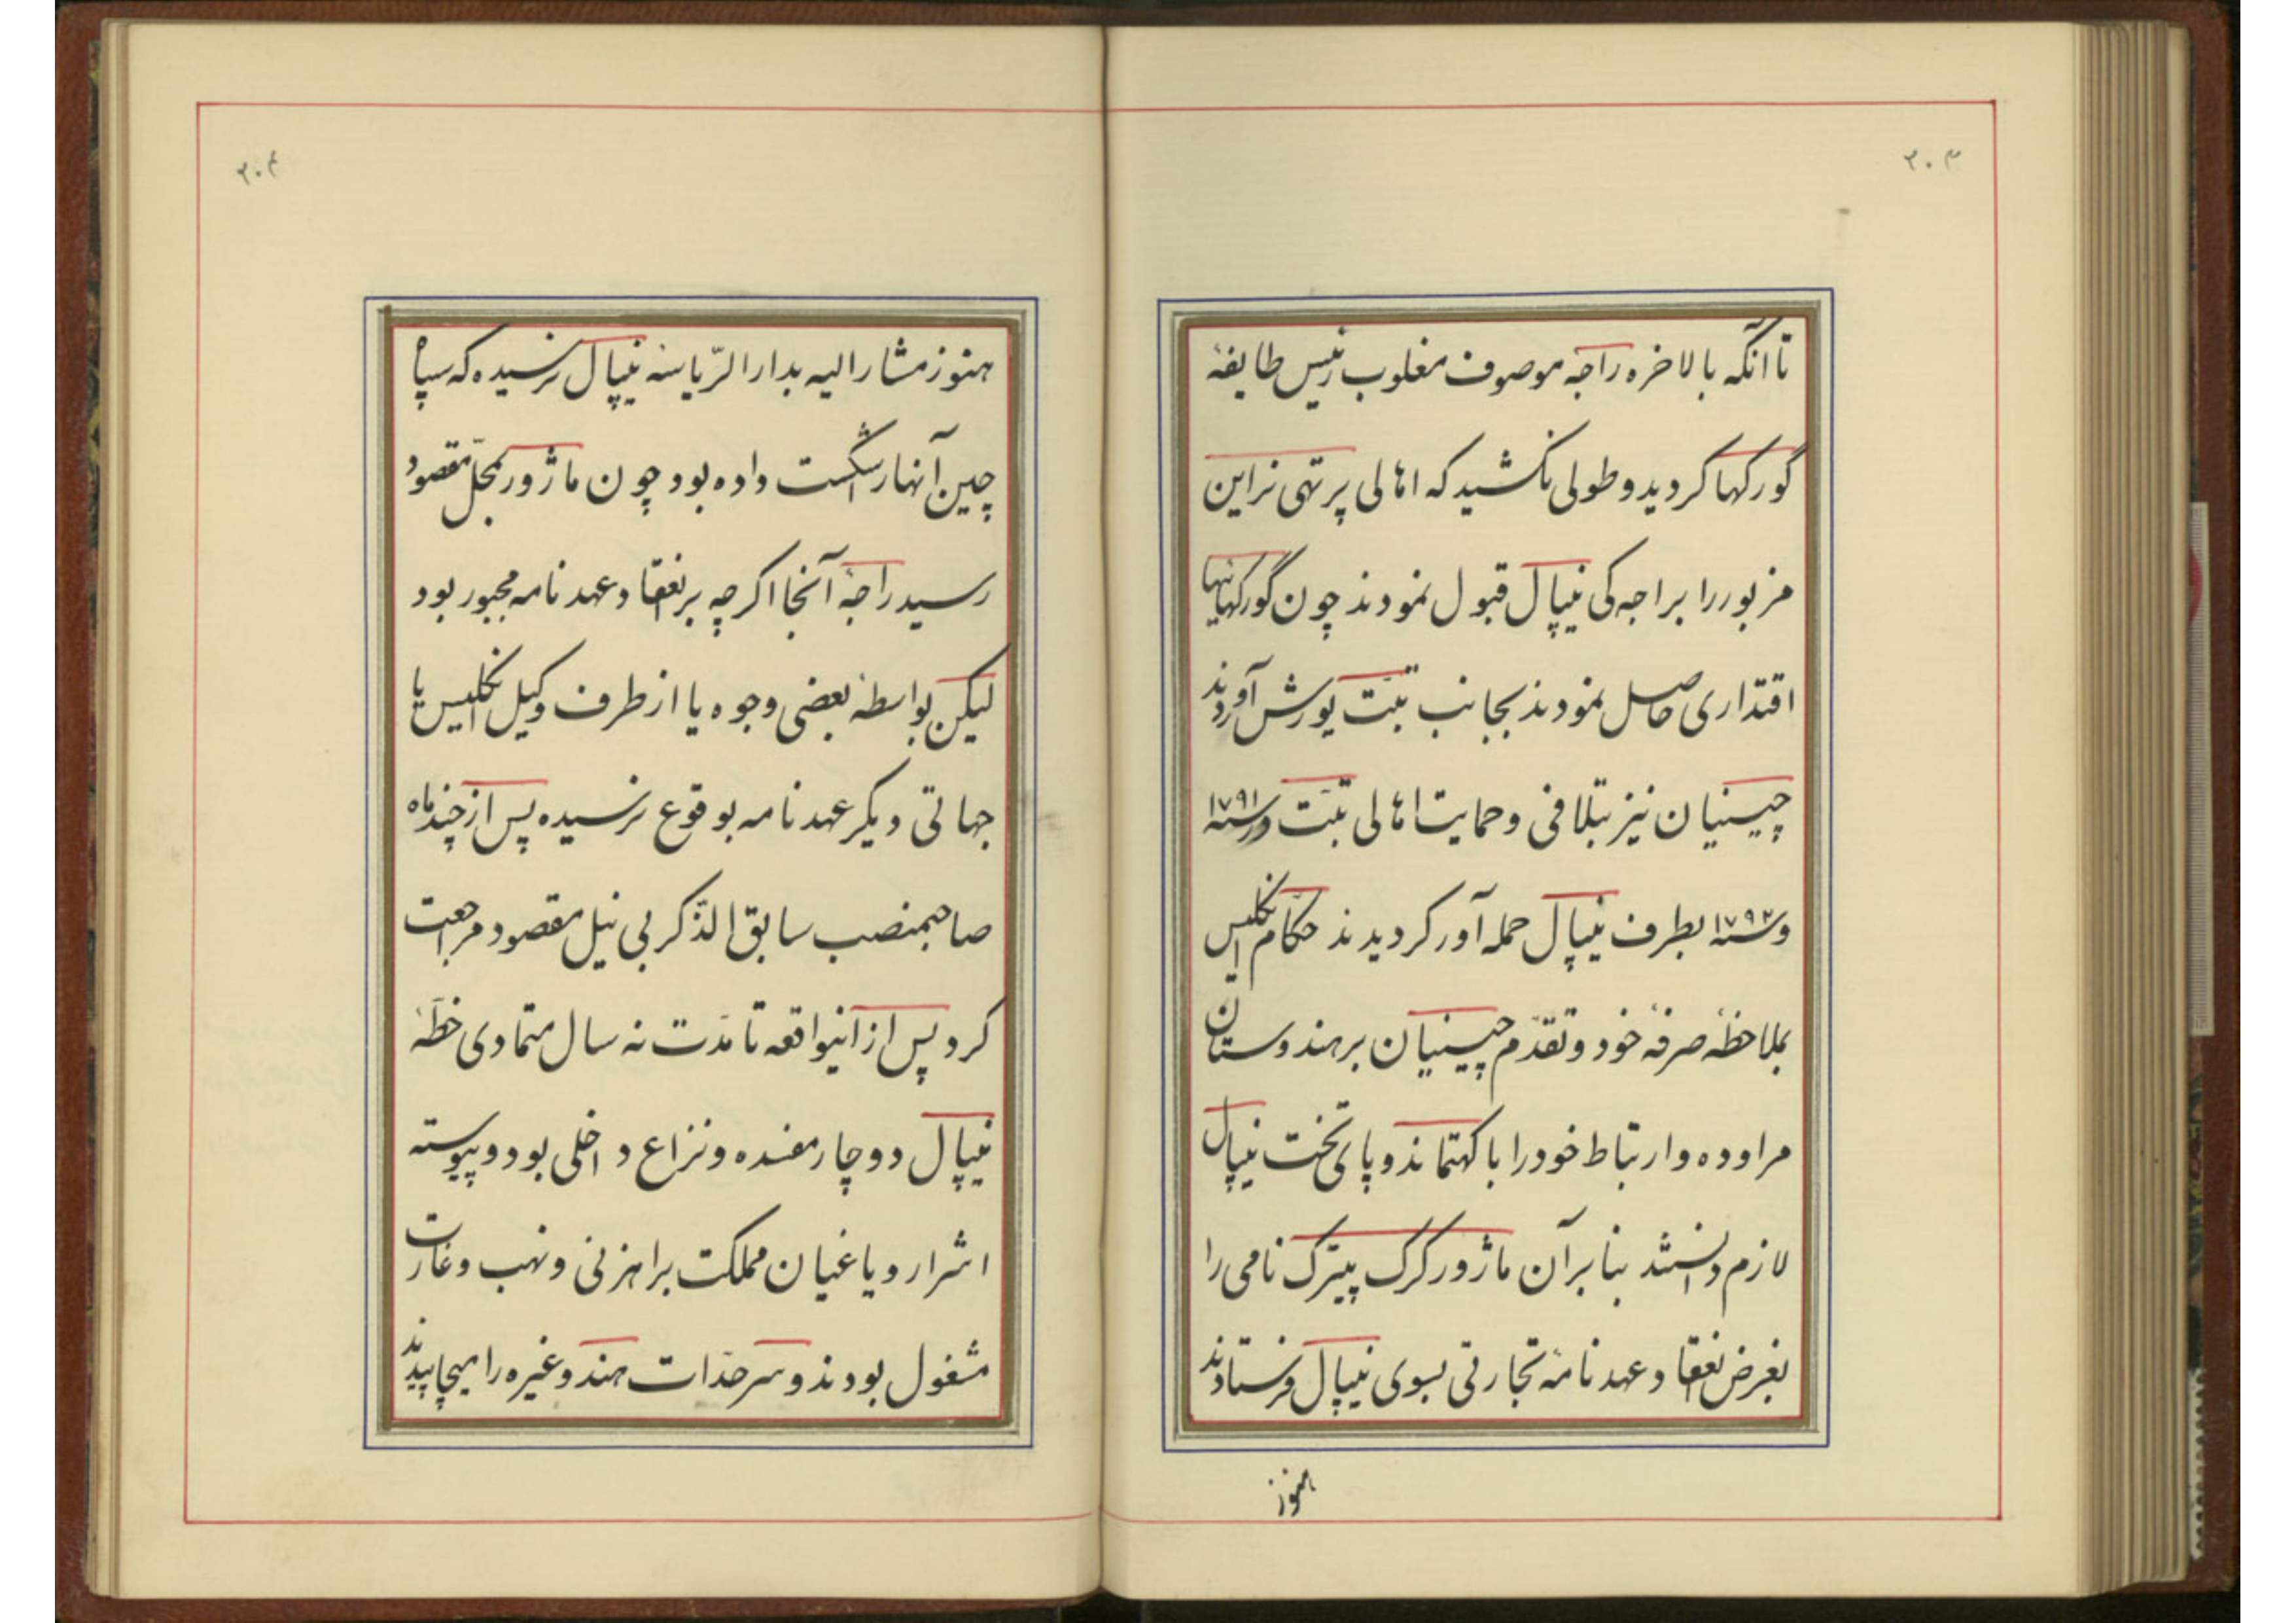 ۲۰۳
تا آنکه بالاخره راجه موصوف مغلوب رئیس طایفهٔ
گورکها کردید و طولی نکشید که اهالی پرتهی نراین
مزبور را براجه‌کی نیپال قبول نمودند چون گورکهانیها
اقتداری حاصل نمودند بجانب تبّت یورش آوردند
چینیان نیز بتلافی و حمایت اهالی تبّت در سنه ۱۷۹۱
و سنه ۱۷۹۲ بطرف نیپال حمله آور کردیدند حکام انکلیس
بملاحظهٔ صرفهٔ خود و تقدّم چینیان بر هندوستان
مراوده و ارتباط خود را با کهتماندو پای تخت نیپال
لازم دانستند بنابرآن ماژور کرک پیترک نامی را
بغرض انعقاد عهدنامهٔ تجارتی بسوی نیپال فرستادند
هنوز
۲۰۴
هنوز مشارالیه بدارالرّیاسهٔ نیپال نرسیده که سپاه
چین آنها را شکست داده بود چون ماژور بمحلّ مقصود
رسید راجهٔ آنجا اکرچه بر انعقاد عهدنامه مجبور بود
لیکن بواسطهٔ بعضی وجوه یا از طرف وکیل انکلیس یا
جهاتی دیکر عهدنامه بوقوع نرسیده پس از چند ماه
صاحبمنصب سابق الذّکر بی نیل مقصود مراجعت
کرد پس از اینواقعه تا مدّت نه سال متمادی خطّهٔ
نیپال دوچار مفسده و نزاع داخلی بود و پیوسته
اشرار و یاغیان مملکت براهزنی و نهب و غارت
مشغول بودند و سرحدّات هند و غیره را میچاپیدند